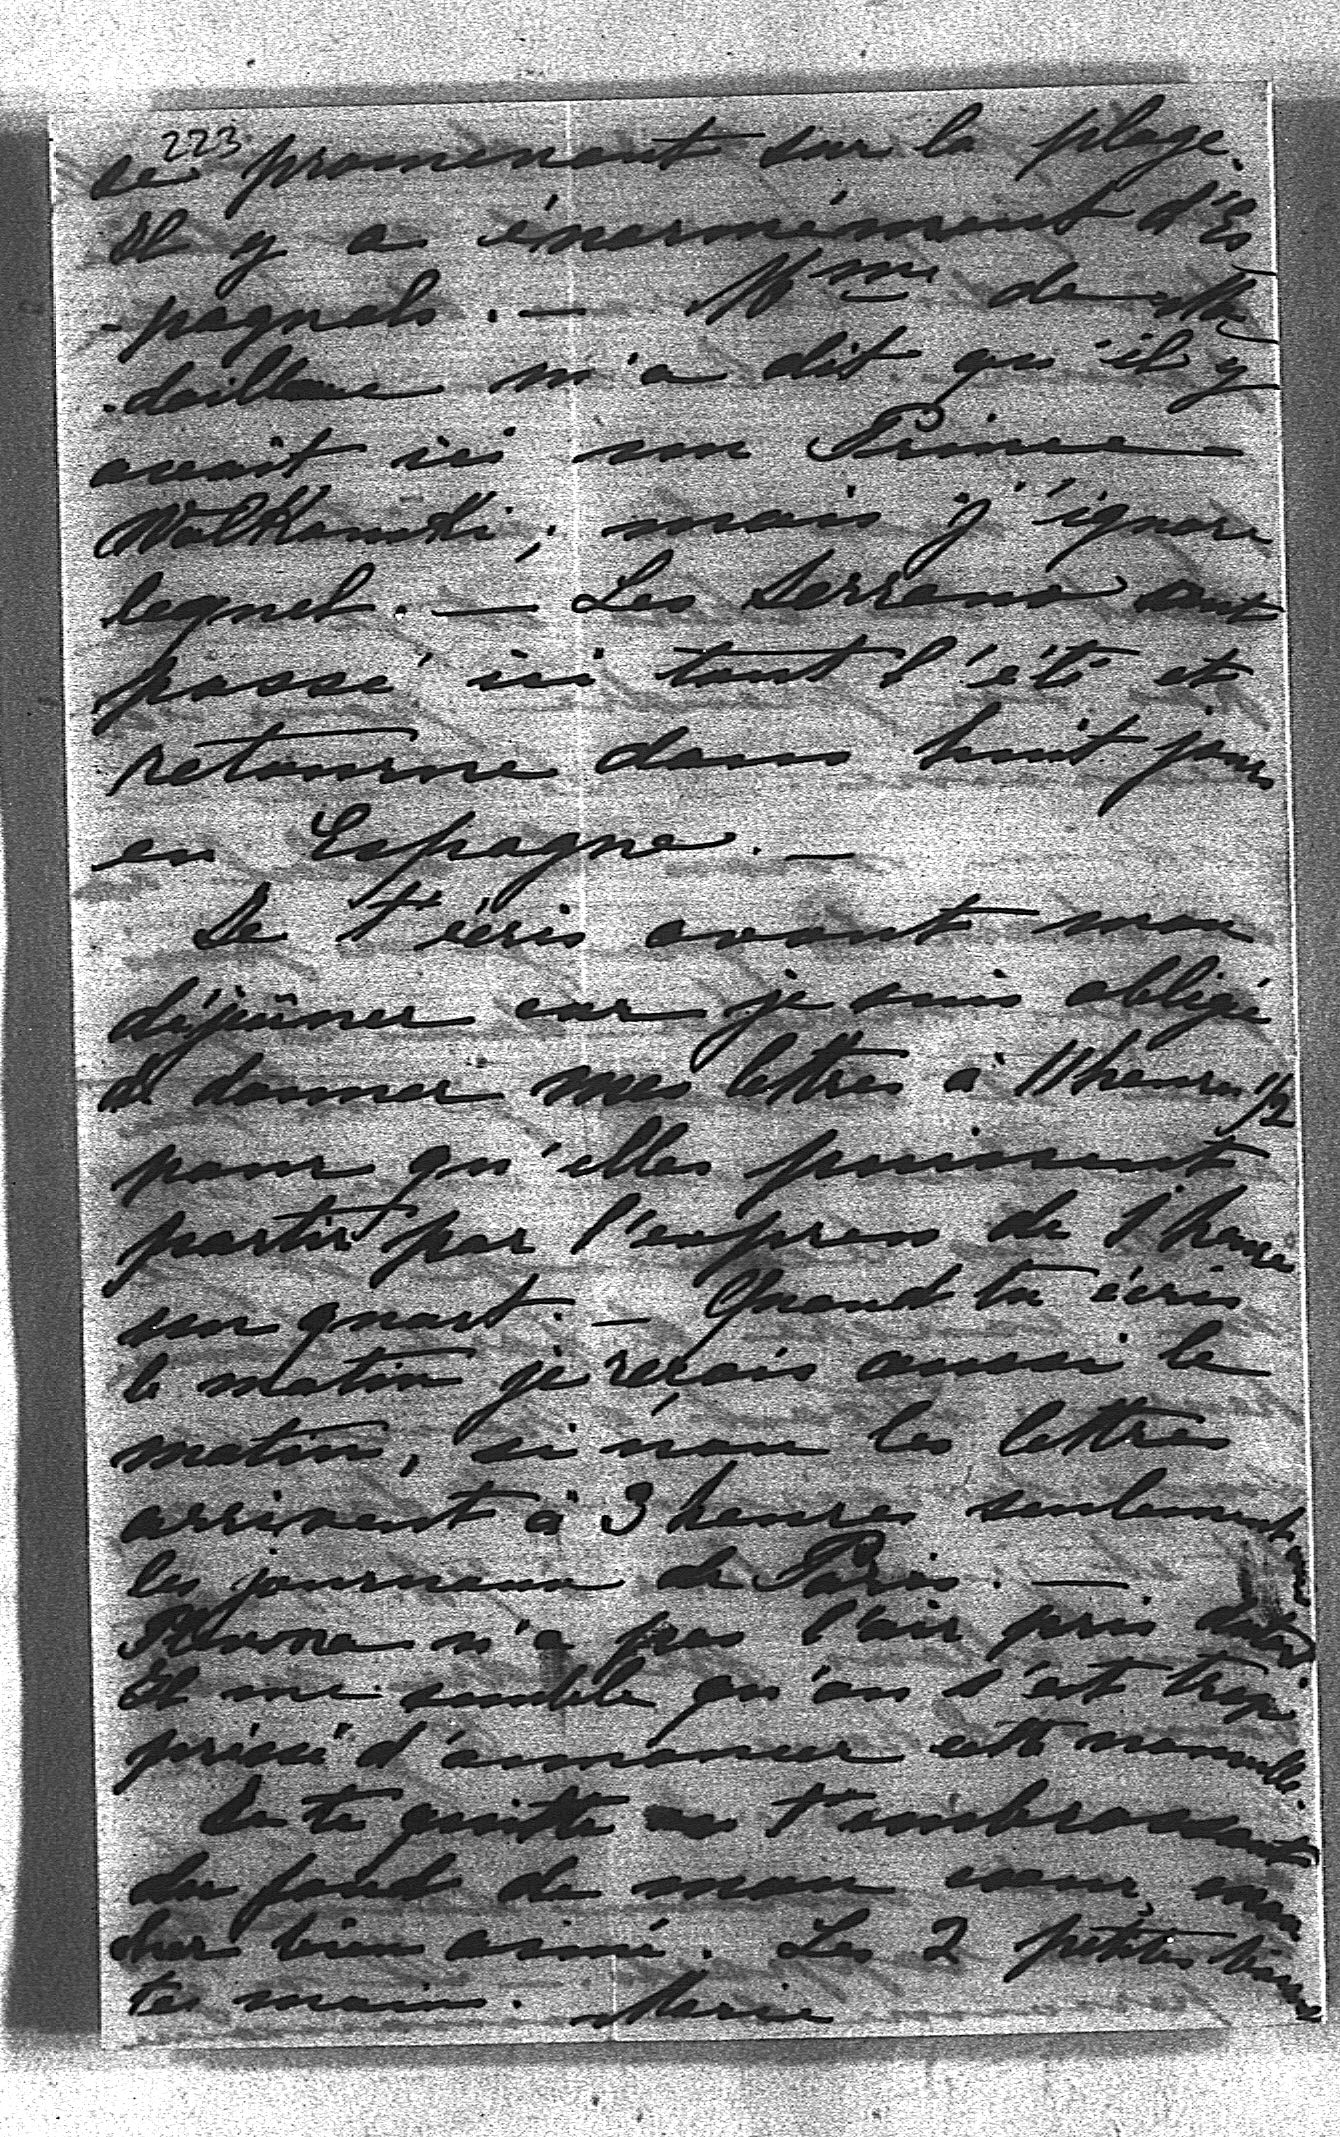 223
se promenent sur la plage.
Il y a énormément d'Es
-pagnols. — Mme de Mé
-daillene m'a dit qu'il y
avait ici un Prince
Wolkonski, mais j'ignore
lequel. — Les Serrano sont
passé ici tout l'été et
retourne dans huit jours
en Espagne. —
Je t'écris avant mon
déjeûner car je suis obligé
de donner mes lettres à 11 heures 1/2
pour qu'elles puissent
partir par l'express de 1 heure
un quart. — Quand tu écris
le matin je reçois aussi le
matin, si non les lettres
arrivent à 3 heures seulement avec
les journaux de Paris. —
Plevna n'a pas l'air pris du tout
Il me semble qu'on s'est trop
pressé d'annoncer cette nouvelle.
Je te quitte en t'embrassant
du fond de mon cœur, mon
cher bien aimé. Les 2 petites baisent
tes mains. Marie